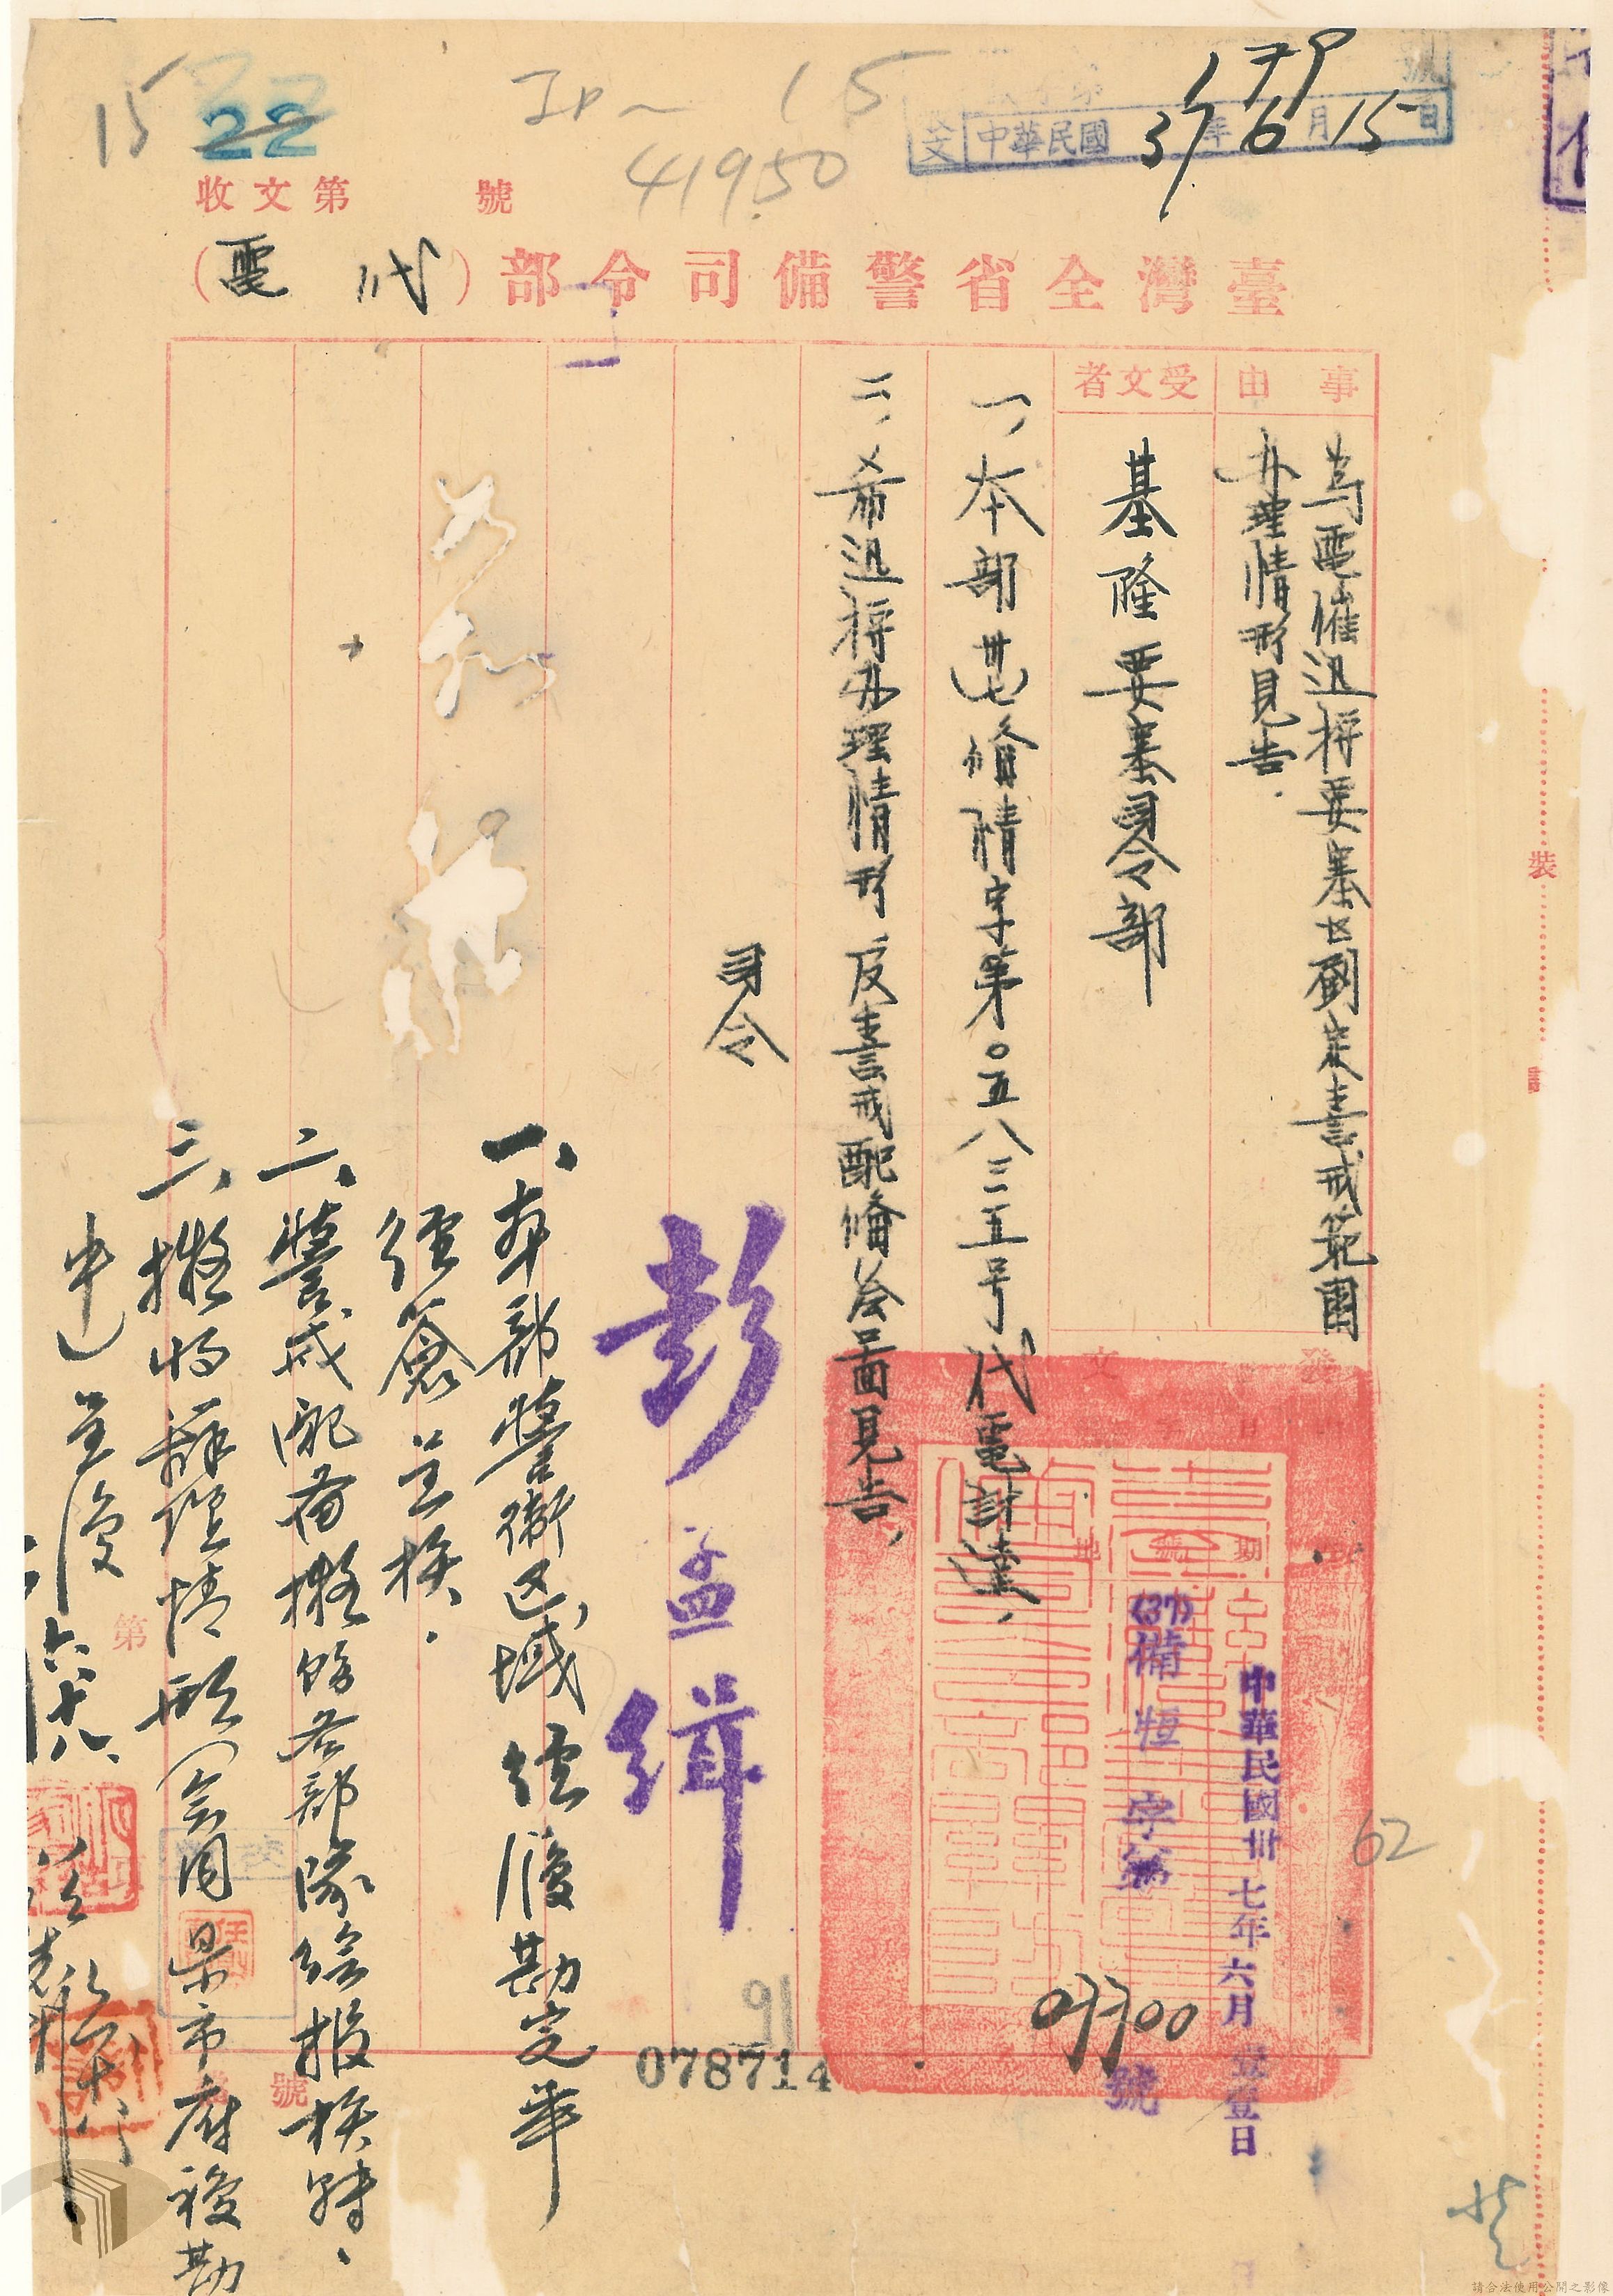 15
22
15
41950
179
發文 中華民國 37年6月15日
收文第 號
臺灣全省警備司令部(代電)
事由
為電催迅將要塞區劃定警戒範圍
办理情形見告.
受文者
基隆要塞司令部
一、本部(卅七)備情字第○五八三五号代電計達.
二、希迅將办理情形及警戒配備繪圖見告、
司令
彭孟緝
中華民國卅七年六月壹壹日
(37)備恒字第
號
發文
日期
078714
91
62
裝
一、本部警衛区域經復勘完畢
經簽呈核.
二、警戒配备擬飭各部隊繪报核轉.
三、擬將辦理情形(会同県市府複勘
中)呈復
六六十八
第
號
請合法使用公開之影像